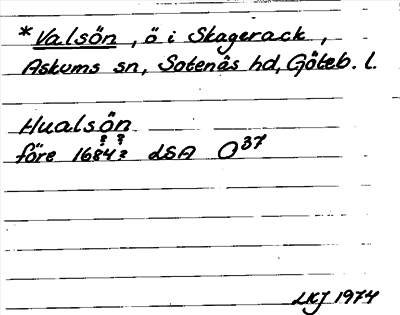 *Valsön, ö i Skagerack,
Askums sn, Sotenäs hd, Göteb. l.
Hualsön
före 1684? LSA O37
LKJ 1974